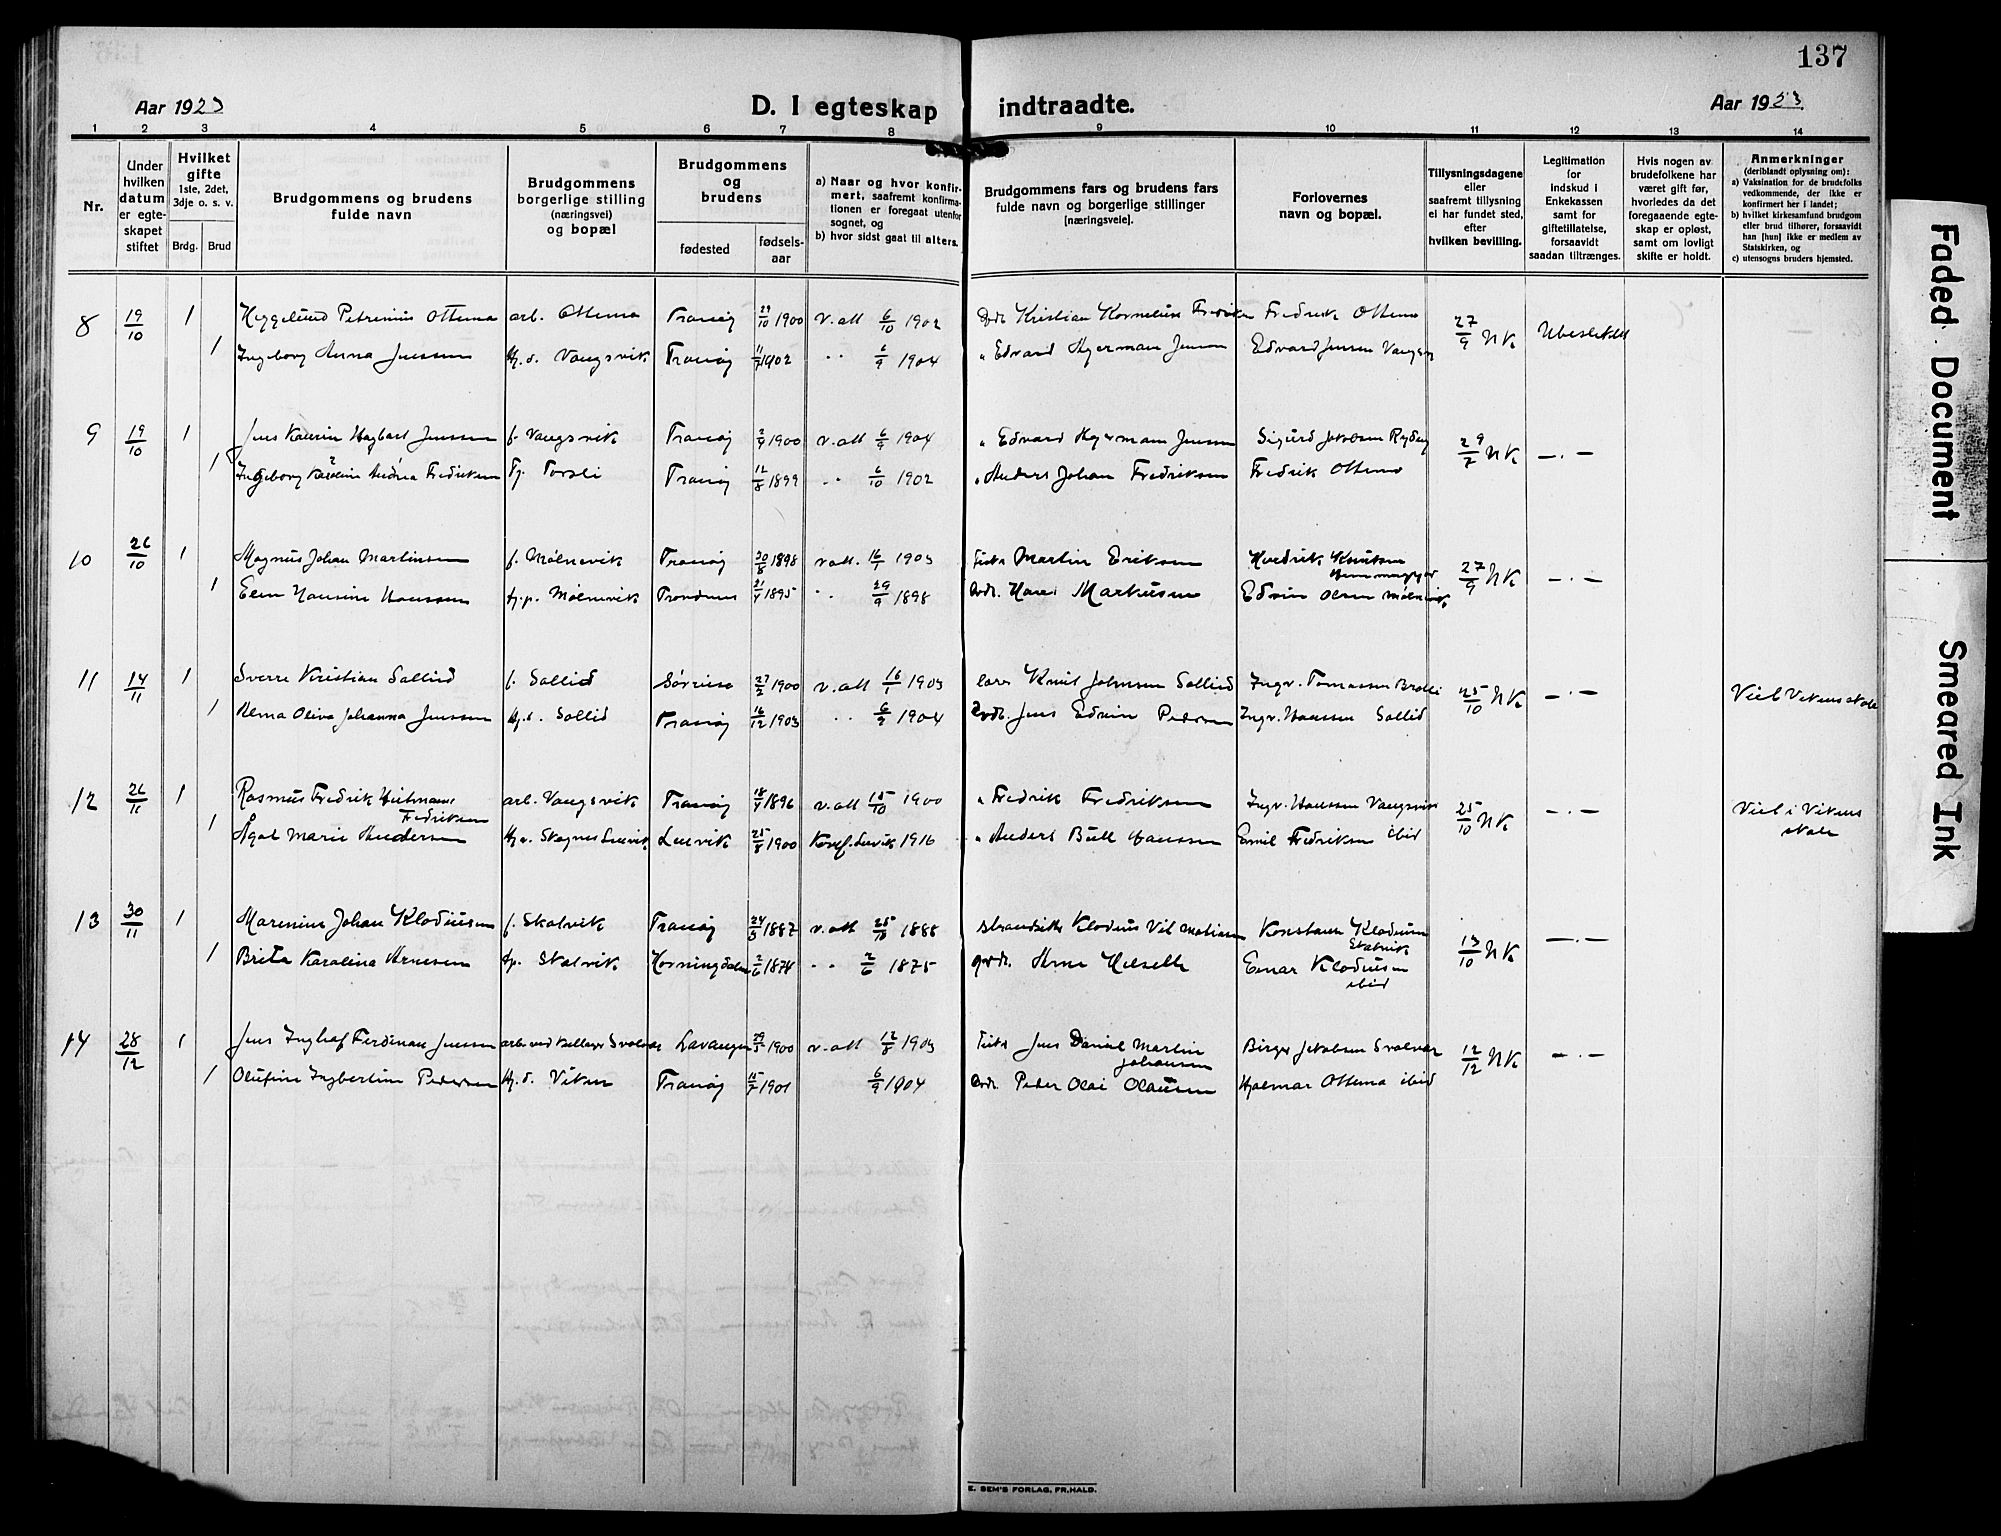 137
Aar 1923
D. I egteskap indtraadte.
Aar 1923
1 2 3 4 5 6 7 8 9 10 11 12 13 14
Nr.
Under hvilken datum er egteskapet stiftet
Hvilket gifte 1ste, 2det, 3dje o. s. v.
Brdg. Brud
Brudgommens og brudens fulde navn
Brudgommens borgerlige stilling (næringsvei) og bopæl
Brudgommens og brudens
fødested
fødselsaar
a) Naar og hvor konfirmert, saafremt konfirmationen er foregaat utenfor sognet, og
b) hvor sidst gaat til alters.
Brudgommens fars og brudens fars fulde navn og borgerlige stillinger (næringsveie).
Forlovernes navn og bopæl.
Tillysningsdagene eller saafremt tillysning ei har fundet sted, efter hvilken bevilling.
Legitimation for indskud i Enkekassen samt for giftetillatelse, forsaavidt saadan tiltrænges.
Hvis nogen av brudefolkene har været gift før, hvorledes da det foregaaende egteskap er opløst, samt om lovligt skifte er holdt.
Anmerkninger (deriblandt oplysning om):
a) Vaksination for de brudefolks vedkommende, der ikke er konfirmert her i landet;
b) hvilket kirkesamfund brudgom eller brud tilhører, forsaavidt han [hun] ikke er medlem av Statskirken, og
c) utensogns bruders hjemsted.
8 19/10 1 Petrinius Ottemo arb. Ottemo Tranøy 29/10 1900 v. alt 6/10 1902 Kristian Kornelius Fredrik Ottemo 27/9 NK Ubeslektet
1 Ingeborg Anna Jenssen Hj.d. Vangsvik Tranøy 1902 " 6/9 1904 " Edvard Hjerman Jenssen Edvard Jenssen
9 19/10 1 Jens Hagbart Jenssen f. Vangsvik Tranøy 2/9 1900 v. alt 6/9 1904 " Edvard Hjerman Jenssen Sigurd Jakobsen 29/7 NK —.—
1 Ingeborg Andrea Fredriksen Tj. Torsli Tranøy 12/8 1899 " 6/10 1902 " Anders Johan Fredriksen Fredrik Ottemo
10 26/10 1 Magnus Johan Martinsen f. Mølnevik Tranøy 30/8 1898 v. alt. 16/1 1903 Martin Eriksen Knutsen 27/9 NK —.—
1 Hansine Hanssen Mølnevik Trondenes 21/4 1895 " 29/9 1898 Hans Markussen Edvin Olsen Mølnevik
11 14/11 1 Sverre Kristian Sollid f. Sollid Sørreisa 27/2 1900 v. alt 16/1 1903 Knut Johnsen Sollid Ingv. Tomassen 25/10 NK —.— Viet Vikens skole
1 Alma Oliva Johanna Jenssen Hj.d. Sollid Tranøy 16/12 1903 " 6/9 1904 Jens Edvin Pedersen Ingv. Hanssen Sollid
12 26/11 1 Rasmus Fredrik Hilmann Fredriksen arb. Vangsvik Tranøy 18/4 1896 v. alt 15/10 1900 " Fredrik Fredriksen Ingv. Hanssen Vangsvik 25/10 NK —.— Viet i Vikens skole
1 Ågot Marie Andersen Lenvik 25/8 1900 Konf. Lenvik 1916 " Anders Bull Hanssen Emil Fredriksen ibid
13 30/11 1 Marenius Johan Klodiussen f. Skatvik Tranøy 24/5 1887 v. alt 25/8 1888 Klodius Vil Matiassen Klodiussen Skatvik 13/10 NK —.—
1 Brita Karolina Arnesen Skatvik Horningdalen 2/6 1874 " 2/6 1875 Arne Helsett Einar Klodiussen ibid
14 28/12 1 Jens Ferdinan Jenssen Lavangen 29/5 1900 v. alt 12/8 1903 Jens Daniel Martin Johansen Birger Jakobsen 12/12 NK —.—
1 Olufine Ingbertine Pedersen Hj.d. Viken Tranøy 15/7 1901 6/9 1904 Peder Olai Olaussen Hjalmar Ottemo ibid
E. SEM'S FORLAG, FR.HALD.
Faded Document
Smeared Ink